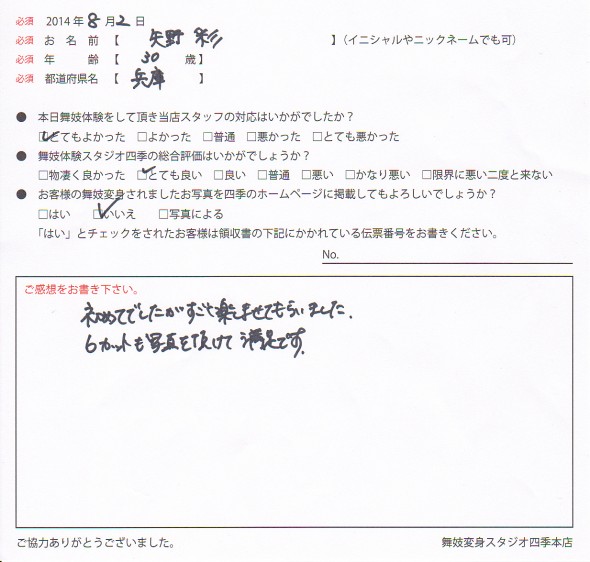 必須 2014年8月2日
必須 お名前【 矢野 彩 】(イニシャルやニックネームでも可)
必須 年齢【 30 歳】
必須 都道府県名【 兵庫 】
● 本日舞妓体験をして頂き当店スタッフの対応はいかがでしたか?
☑とてもよかった □よかった □普通 □悪かった □とても悪かった
● 舞妓体験スタジオ四季の総合評価はいかがでしょうか?
□物凄く良かった ☑とても良い □良い □普通 □悪い □かなり悪い □限界に悪い二度と来ない
● お客様の舞妓変身されましたお写真を四季のホームページに掲載してもよろしいでしょうか?
□はい ☑いいえ □写真による
「はい」とチェックをされたお客様は領収書の下記にかかれている伝票番号をお書きください。
No.
ご感想をお書き下さい。
初めてでしたがすごく楽しませてもらいました。
6カットも写真を頂けて満足です。
ご協力ありがとうございました。 舞妓変身スタジオ四季本店